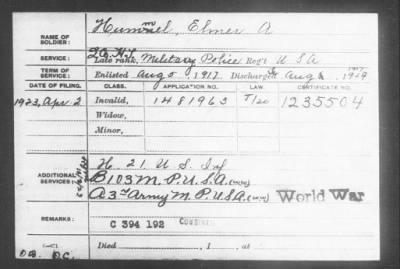 NAME OF SOLDIER: Hummel, Elmer A
SERVICE: Late rank, Military Police Reg't U S A
TERM OF SERVICE: Enlisted Aug 5 1917 Discharged Aug 1919
DATE OF FILING. CLASS. APPLICATION NO. LAW. CERTIFICATE NO.
1923, Apr 2 Invalid, 1481963 T/20 1235504
Widow,
Minor,
ADDITIONAL SERVICES: H. 21. U S Inf
B 103 M. P. U.S.A. (WW)
A 3d Army M. P. U.S.A. (WW) World War
REMARKS: C 394 192 COMBINED
Died , 1 , at